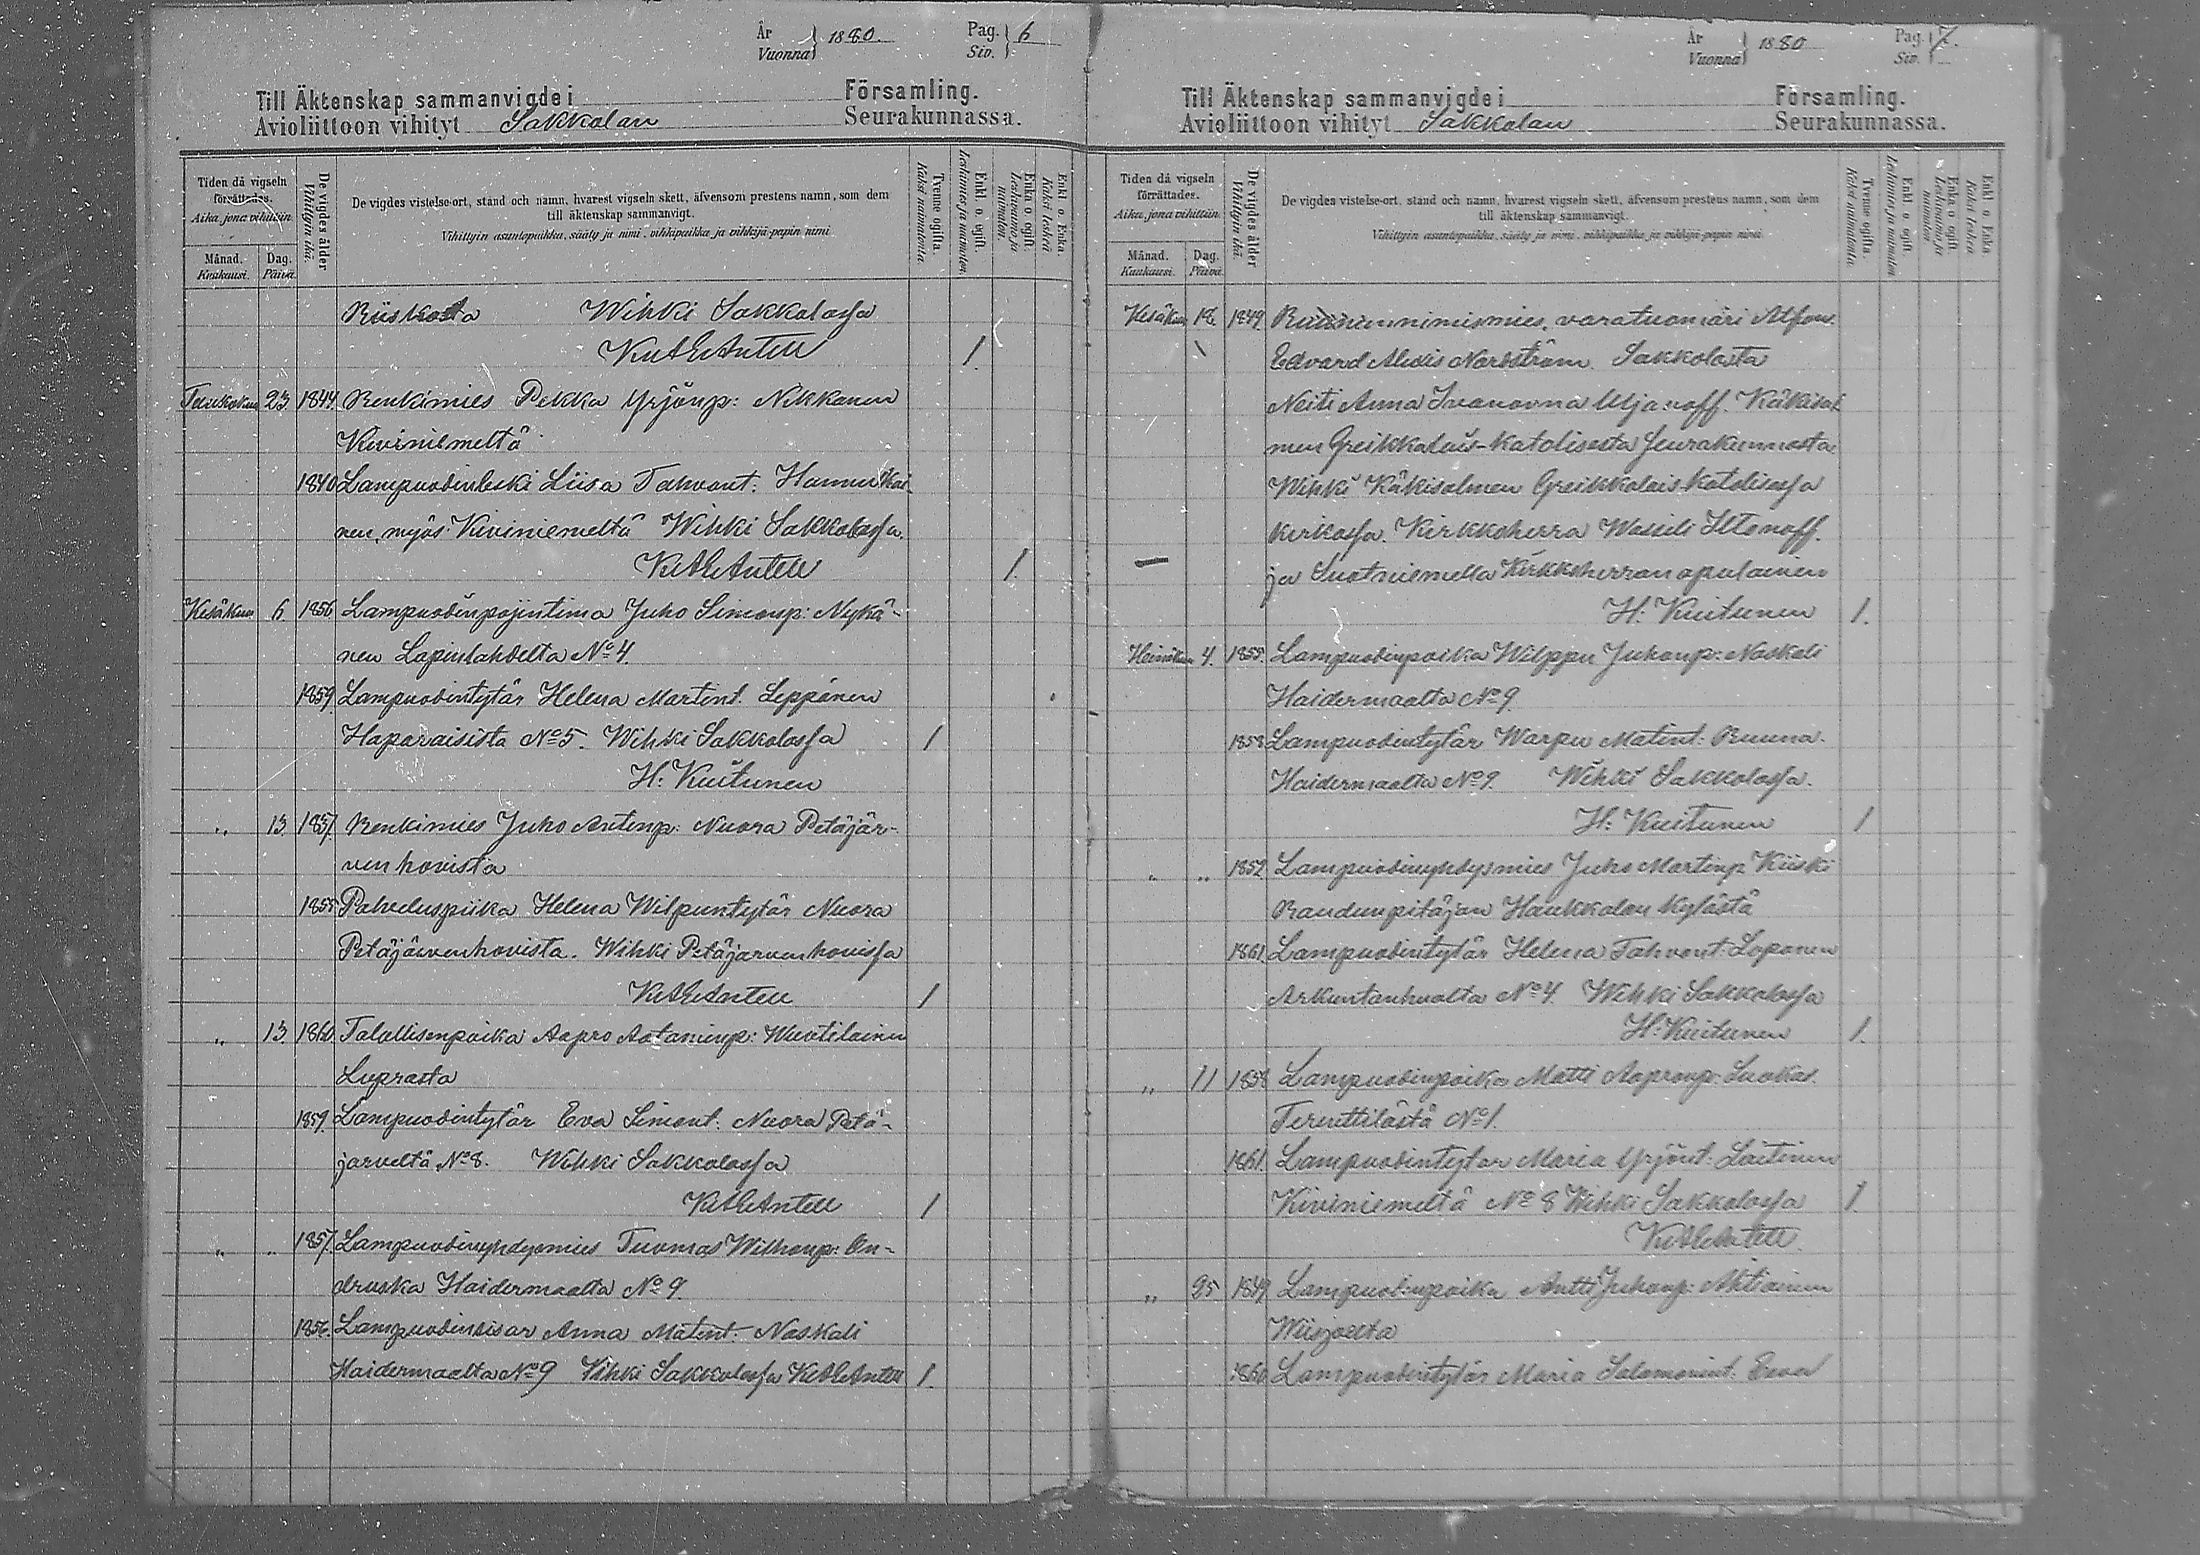 År
Vuonna 1880. Pag. Siv. 6
Till Äktenskap sammanvigde i Församling.
Avioliittoon vihityt Sakkolan Seurakunnassa.
Tiden då vigseln förrättades.
Aika, jona vihittiin
Månad. Kuukausi.
Dag. Päivä
De vigdes ålder
Vihittyin ikä.
De vigdes vistelse-ort, stånd och namn, hvarest vigseln skett, äfvensom prestens namn, som dem
till äktenskap sammanvigt.
Vihittyin asuntopaikka, sääty ja nimi, vihkipaikka ja vihkijä-papin nimi
Tvenne ogifta.
Kaksi naimatonta.
Enkl. o. ogift.
Leskimies ja naimaton.
Enka o. ogift
Leskivaimo ja naimaton.
Enkl. o. Enka.
Kaksi leskeä
Riiskasta Wihki Sakkolassa
1.
Toukokuu 23. 1844. Renkimies Pekka Yrjönp: Nikkanen
Kiviniemeltä
1840 Lampuodinleski Liisa Tahvont. Hannukai-
nen, myös Kiviniemeltä Wihki Sakkolassa.
1.
Kesäkuu 6 1856 Lampuodinpojintima Juho Simonp: Nykä-
nen Lapinlahdelta No 4.
1859 Lampuodintytär Helena Martint. Leppänen
Haparaisista No 5. Wihki Sakkolassa 1
H. Kuitunen
" 13 1857. Renkimies Juho Antinp: Nuora Petäjär-
venhovista
1855 Palveluspiika Helena Wilpuntytär Nuora
Petäjärvenhovista. Wihki Petäjärvenhovissa
1
" 13 1860. Talollisenpoika Aapro Aataminp: Wuotilainen
Luprasta
1859. Lampuodintytär Eva Simont. Nuora Petä-
jarveltä No 8. Wihki Sakkolassa
1
" " 1857. Lampuodinyhdysmies Tuomas Wilhonp: On-
druska Haidermaalta No 9.
1856. Lampuodinsisar Anna Matint. Naskali
Haidermaalta No 9 Wihki Sakkolassa 1.
År
Vuonna 1880 Pag. Siv. 7.
Till Äktenskap sammanvigde i Församling.
Avioliittoon vihityt Sakkolan Seurakunnassa.
Tiden då vigseln förrättades.
Aika, jona vihittiin
Månad. Kuukausi.
Dag. Päivä.
De vigdes ålder
Vihittyin ikä.
De vigdes vistelse-ort, stånd och namn, hvarest vigseln skett, äfvensom prestens namn, som dem
till äktenskap sammanvigt.
Vihittyin asuntopaikka, sääty ja nimi, vihkipaikka ja vihkijä-papin nimi
Tvenne ogifta.
Kaksi naimatonta.
Enkl. o. ogift.
Leskimies ja naimaton
Enka o. ogift
Leskivaimo ja naimaton
Enkl. o. Enka
Kaksi leskeä
Kesäkuu 18. 1849. Ruununnimismies, varatuomari Alfons
Edvard Alexis Nordström Sakkolasta
Neiti Anna Ivanovna Käkisal-
men Greikkalais-Katolisesta Seurakunnasta
Wihki Käkisalmen Greikkalais-katolisessa
kirkossa. Kirkkoherra Wassili
ja Suotniemella Kirkkoherran apulainen
H: Kuitunen 1.
Heinäkuu 4. 1855. Lampuodinpoika Wilppu Juhonp: Naskali
Haidermaalta No 9.
1858 Lampuodintytär Warpu Matint: Ruuna.
Haidermaalta No 9. Wihki Sakkolassa.
H: Kuitunen 1
" " 1852. Lampuodinyhdysmies Juho Martinp. Kiiski
Raudunpitäjän Haukkalan kylästä
1861. Lampuodintytär Helena Tahvont. Loponen
Arkuntanhualta No 4. Wihki Sakkolassa
H: Kuitunen 1.
" 11 1858 Lampuodinpoika Matti Aapronp: Luukas.
Teruttilästä No 1.
1861. Lampuodintytar Maria Yrjönt. Laitinen
Kiviniemeltä No 8 Wihki Sakkolassa 1
" 25 1849 Lampuodinpoika Antti Juhonp: Ahtiainen
Wiisjoelta
1860. Lampuodintytär Maria Salomonint. Eeva